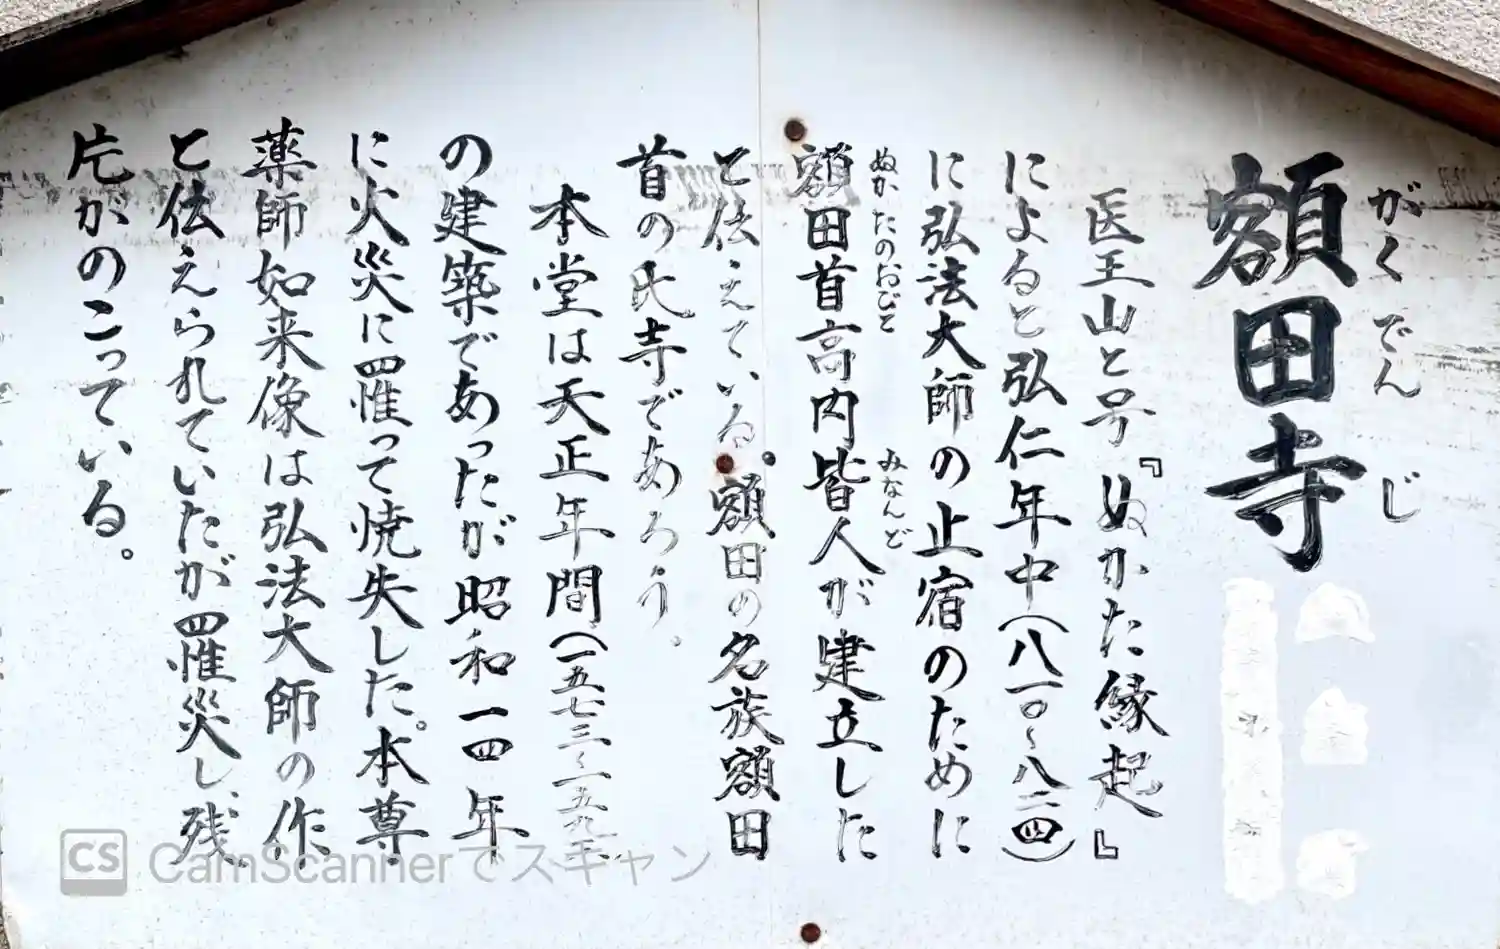 がくでんじ
額田寺
医王山と号『ぬかた縁起』
によると弘仁年中(八一〇~八二四)
に弘法大師の止宿のために
ぬかたのおびと みなんど
額田首高内皆人が建立した
と伝えている。額田の名族額田
首の氏寺であろう。
本堂は天正年間(一五七三~一五九二)
の建築であったが昭和一四年
に火災に罹って焼失した。本尊
薬師如来像は弘法大師の作
と伝えられていたが罹災し、残
片がのこっている。
CS CamScannerでスキャン